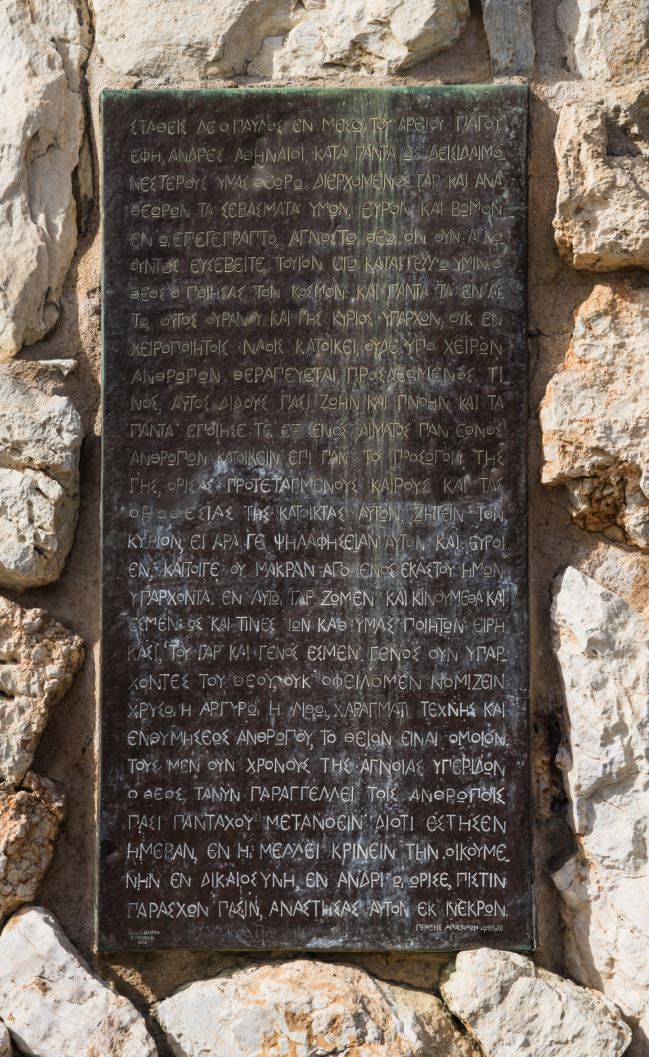 ΣΤΑΘΕΙΣ ΔΕ Ο ΠΑΥΛΟΣ ΕΝ ΜΕΣΩ, ΤΟΥ ΑΡΕΙΟΥ ΠΑΓΟΥ
ΕΦΗ, ΑΝΔΡΕΣ ΑΘΗΝΑΙΟΙ, ΚΑΤΑ ΠΑΝΤΑ ΩΣ ΔΕΙΣΙΔΑΙΜΟ
ΝΕΣΤΕΡΟΥΣ ΥΜΑΣ ΘΕΩΡΩ. ΔΙΕΡΧΟΜΕΝΟΣ ΓΑΡ ΚΑΙ ΑΝΑ
ΘΕΩΡΩΝ ΤΑ ΣΕΒΑΣΜΑΤΑ ΥΜΩΝ, ΕΥΡΟΝ ΚΑΙ ΒΩΜΟΝ
ΕΝ Ω, ΕΠΕΓΕΓΡΑΠΤΟ, ΑΓΝΩΣΤΩ, ΘΕΩ. ΟΝ ΟΥΝ ΑΓΝΟ
ΟΥΝΤΕΣ ΕΥΣΕΒΕΙΤΕ, ΤΟΥΤΟΝ ΕΓΩ ΚΑΤΑΓΓΕΛΛΩ ΥΜΙΝ. Ο
ΘΕΟΣ Ο ΠΟΙΗΣΑΣ ΤΟΝ ΚΟΣΜΟΝ ΚΑΙ ΠΑΝΤΑ ΤΑ ΕΝ ΑΥ
ΤΩ, ΟΥΤΟΣ ΟΥΡΑΝΟΥ ΚΑΙ ΓΗΣ ΚΥΡΙΟΣ ΥΠΑΡΧΩΝ, ΟΥΚ ΕΝ
ΧΕΙΡΟΠΟΙΗΤΟΙΣ ΝΑΟΙΣ ΚΑΤΟΙΚΕΙ, ΟΥΔΕ ΥΠΟ ΧΕΙΡΩΝ
ΑΝΘΡΩΠΩΝ ΘΕΡΑΠΕΥΕΤΑΙ, ΠΡΟΣΔΕΟΜΕΝΟΣ ΤΙ
ΝΟΣ, ΑΥΤΟΣ ΔΙΔΟΥΣ ΠΑΣΙ ΖΩΗΝ ΚΑΙ ΠΝΟΗΝ ΚΑΙ ΤΑ
ΠΑΝΤΑ ΕΠΟΙΗΣΕ ΤΕ ΕΞ ΕΝΟΣ ΑΙΜΑΤΟΣ ΠΑΝ ΕΘΝΟΣ
ΑΝΘΡΩΠΩΝ ΚΑΤΟΙΚΕΙΝ ΕΠΙ ΠΑΝ ΤΟ ΠΡΟΣΩΠΟΝ ΤΗΣ
ΓΗΣ, ΟΡΙΣΑΣ ΠΡΟΤΕΤΑΓΜΕΝΟΥΣ ΚΑΙΡΟΥΣ ΚΑΙ ΤΑΣ
ΟΡΟΘΕΣΙΑΣ ΤΗΣ ΚΑΤΟΙΚΙΑΣ ΑΥΤΩΝ, ΖΗΤΕΙΝ ΤΟΝ
ΚΥΡΙΟΝ, ΕΙ ΑΡΑ ΓΕ ΨΗΛΑΦΗΣΕΙΑΝ ΑΥΤΟΝ ΚΑΙ ΕΥΡΟΙ
ΕΝ, ΚΑΙΤΟΙΓΕ ΟΥ ΜΑΚΡΑΝ ΑΠΟ ΕΝΟΣ ΕΚΑΣΤΟΥ ΗΜΩΝ
ΥΠΑΡΧΟΝΤΑ. ΕΝ ΑΥΤΩ, ΓΑΡ ΖΩΜΕΝ ΚΑΙ ΚΙΝΟΥΜΕΘΑ ΚΑΙ
ΕΣΜΕΝ ΩΣ ΚΑΙ ΤΙΝΕΣ ΤΩΝ ΚΑΘ ΥΜΑΣ ΠΟΙΗΤΩΝ ΕΙΡΗ
ΚΑΣΙ, ΤΟΥ ΓΑΡ ΚΑΙ ΓΕΝΟΣ ΕΣΜΕΝ. ΓΕΝΟΣ ΟΥΝ ΥΠΑΡ
ΧΟΝΤΕΣ ΤΟΥ ΘΕΟΥ, ΟΥΚ ΟΦΕΙΛΟΜΕΝ ΝΟΜΙΖΕΙΝ
ΧΡΥΣΩ, Η ΑΡΓΥΡΩ Η ΛΙΘΩ, ΧΑΡΑΓΜΑΤΙ ΤΕΧΝΗΣ ΚΑΙ
ΕΝΘΥΜΗΣΕΩΣ ΑΝΘΡΩΠΟΥ, ΤΟ ΘΕΙΟΝ ΕΙΝΑΙ ΟΜΟΙΟΝ.
ΤΟΥΣ ΜΕΝ ΟΥΝ ΧΡΟΝΟΥΣ ΤΗΣ ΑΓΝΟΙΑΣ ΥΠΕΡΙΔΩΝ
Ο ΘΕΟΣ, ΤΑΝΥΝ ΠΑΡΑΓΓΕΛΛΕΙ ΤΟΙΣ ΑΝΘΡΩΠΟΙΣ
ΠΑΣΙ ΠΑΝΤΑΧΟΥ ΜΕΤΑΝΟΕΙΝ ΔΙΟΤΙ ΕΣΤΗΣΕΝ
ΗΜΕΡΑΝ, ΕΝ Η, ΜΕΛΛΕΙ ΚΡΙΝΕΙΝ ΤΗΝ ΟΙΚΟΥΜΕ
ΝΗΝ ΕΝ ΔΙΚΑΙΟΣΥΝΗ, ΕΝ ΑΝΔΡΙ Ω, ΩΡΙΣΕ, ΠΙΣΤΙΝ
ΠΑΡΑΣΧΩΝ ΠΑΣΙΝ, ΑΝΑΣΤΗΣΑΣ ΑΥΤΟΝ ΕΚ ΝΕΚΡΩΝ.
ΠΡΑΞΕΙΣ ΑΠΟΣΤΟΛΩΝ